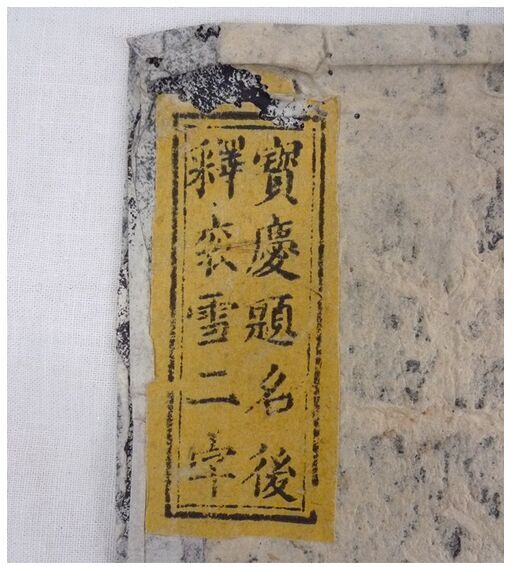 寳慶題名後
釋衮雪二字